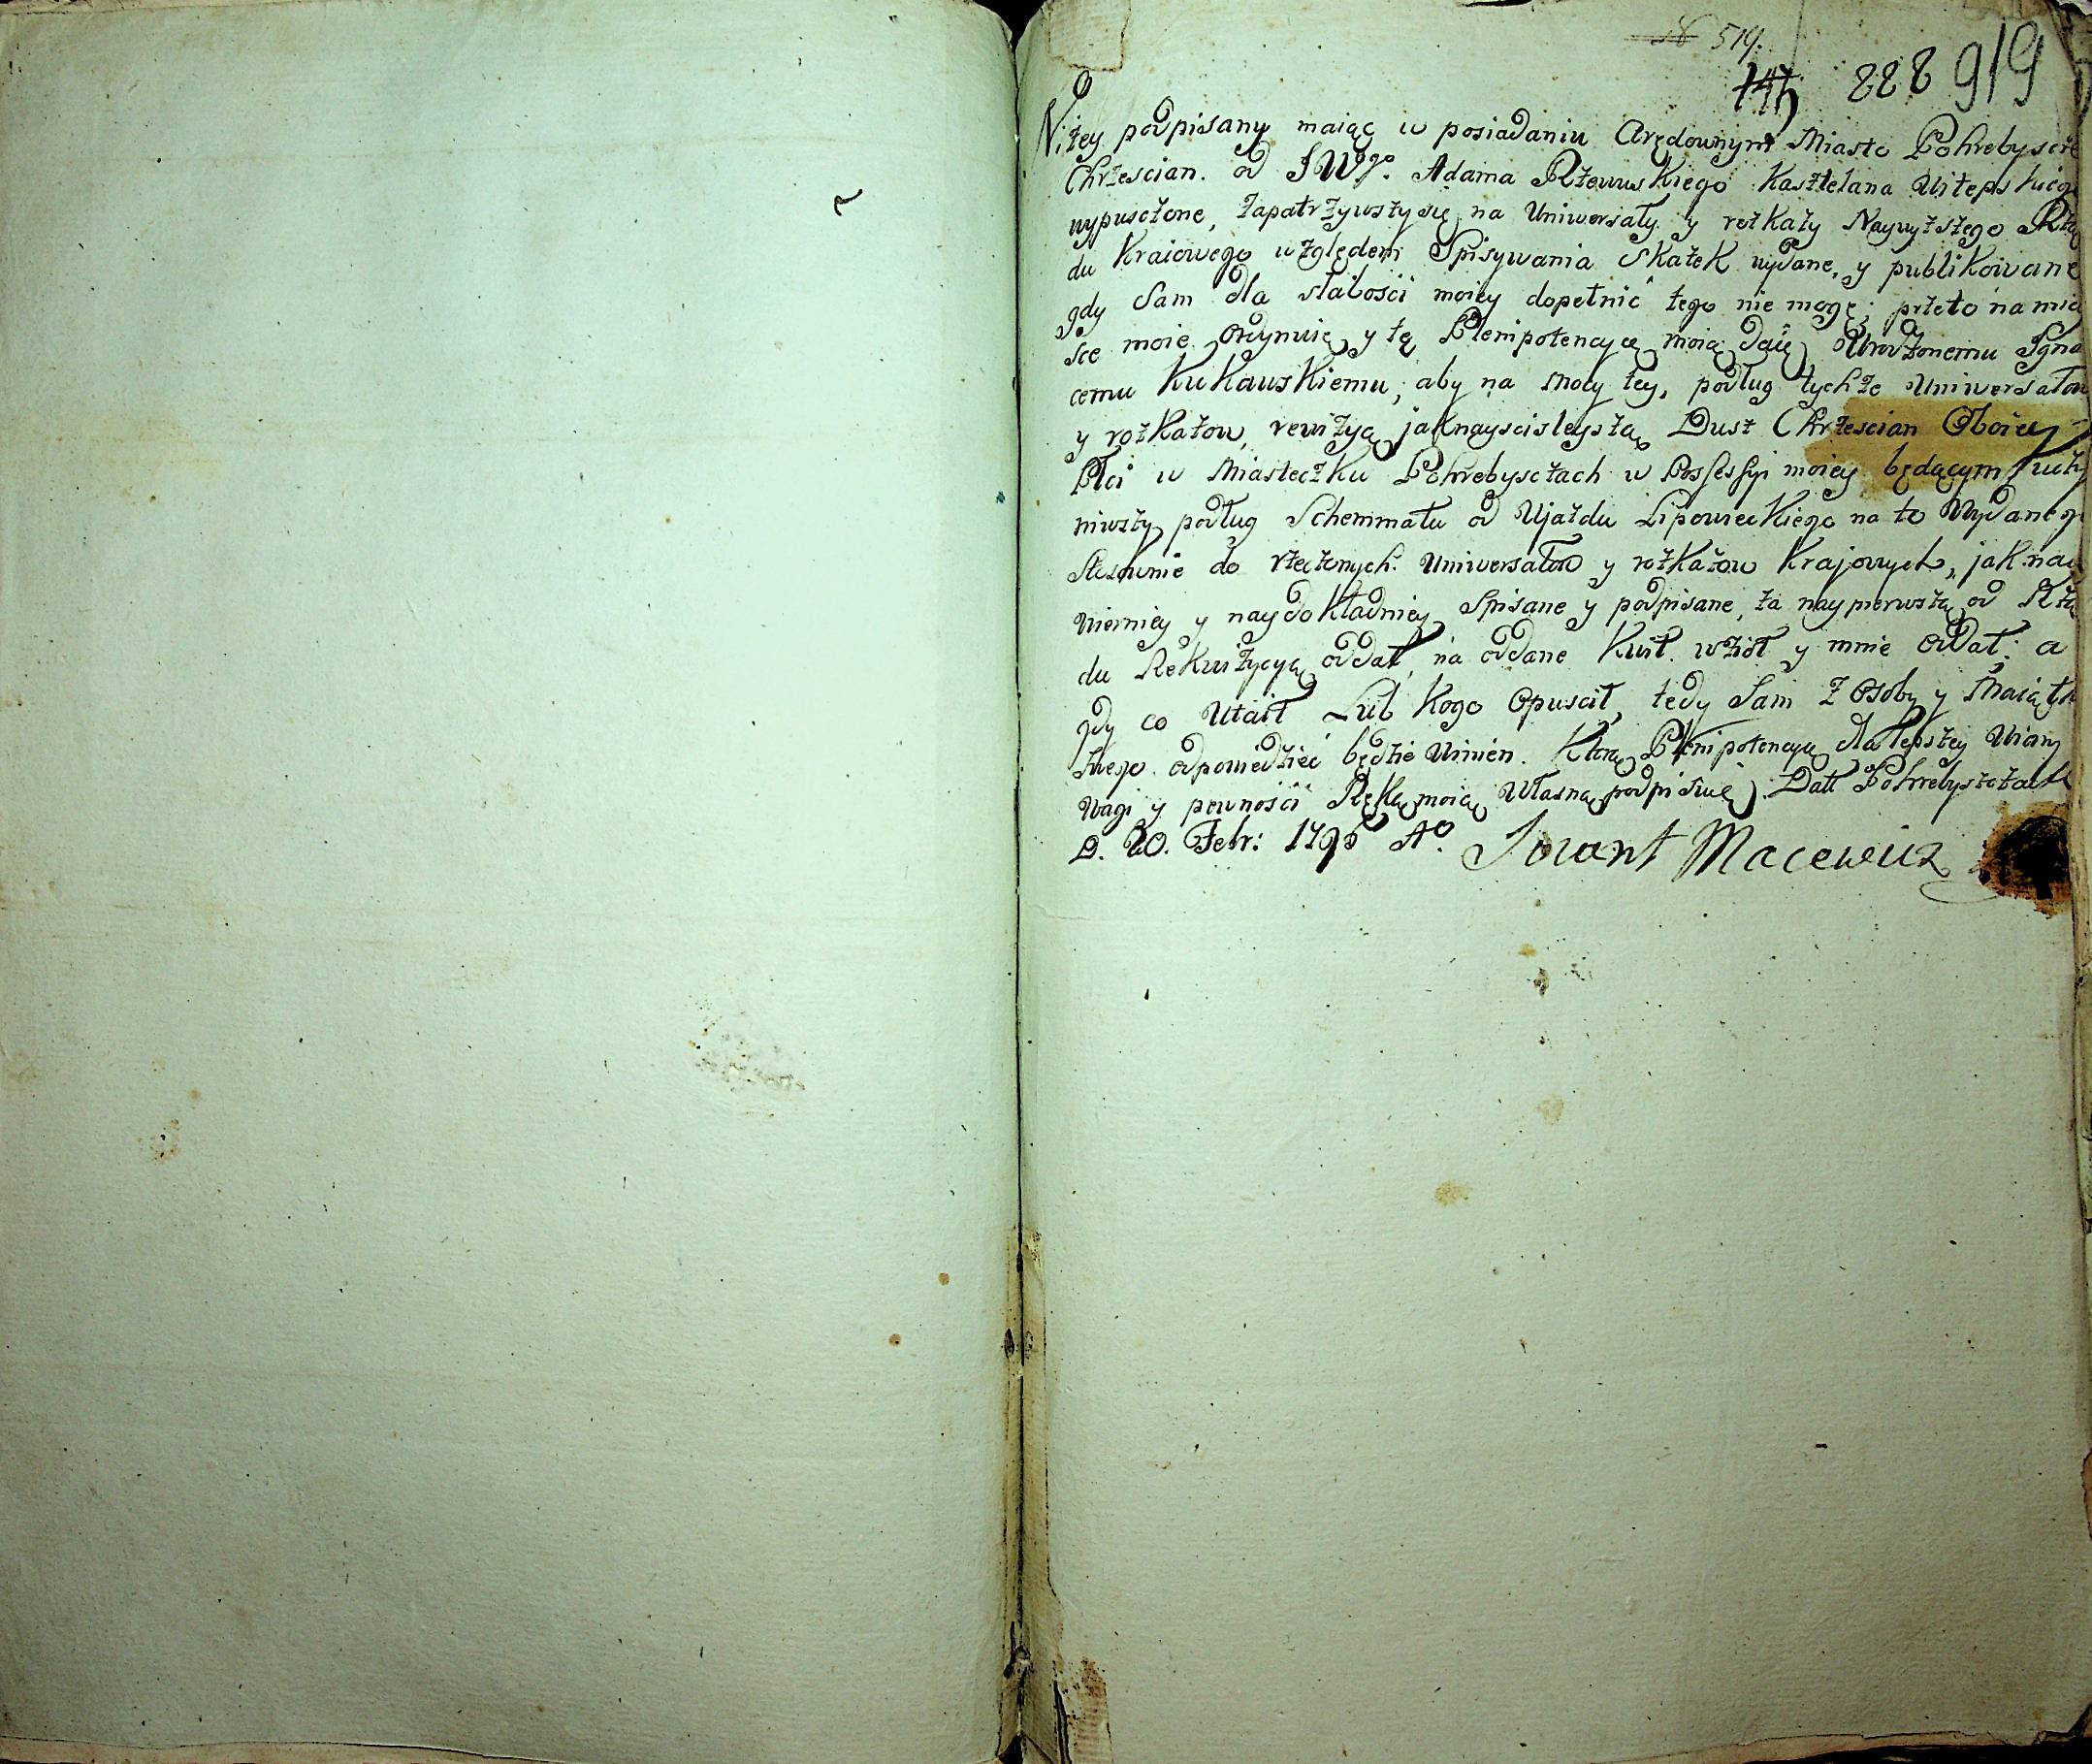 519.
888 919
Niżey podpisany maiąc w posiadaniu Arędownym Miasto Pohrebyscze
Chrzescian. od JWgo. Adama Rzewuskiego Kasztelana Witepskiego
wypusczone, zapatrzywszy się na Uniwersały y rozkazy Naywyższego Rzą
du Kraiowego względem Spisywania Skazek wydane, y publikowane
gdy Sam dla słabości moiey dopełnić tego nie mogę; przeto na miey
sce moie ordynuię y tę Plenipotencyą moią daię Urodzonemu Igna
cemu Kukawskiemu, aby na mocy tey, podług tychże Uniwersałow
y rozkazow, rewizyą jaknayscisleyszą Dusz Chrzescian Oboiey
Płci w Miasteczku Pohrebysczach w Possessyi moiey będącym uczy
niwszy podług Schemmatu od Ujazdu Lipowieckiego na to Wydanego
Stosownie do rzeczonych Uniwersałow y rozkazow Krajowych, jak nay
wierniey y naydokładniey Spisane y podpisane, za naypierwszą od Rzą
du Rekwizycyą oddał, na oddane Kwit wziął y mnie oddał; a
gdy co Utaił Lub kogo Opuscił, tedy Sam z Osoby y Maiątku
Swego odpowiedzieć będzie Winien. Którą Plenipotencyą dla lepszey Wiary
Wagi y pewności Ręką moią Własną podpisuię Datt Pohrebysczach
D. 20. Febr: 1795 Ao. Macewicz